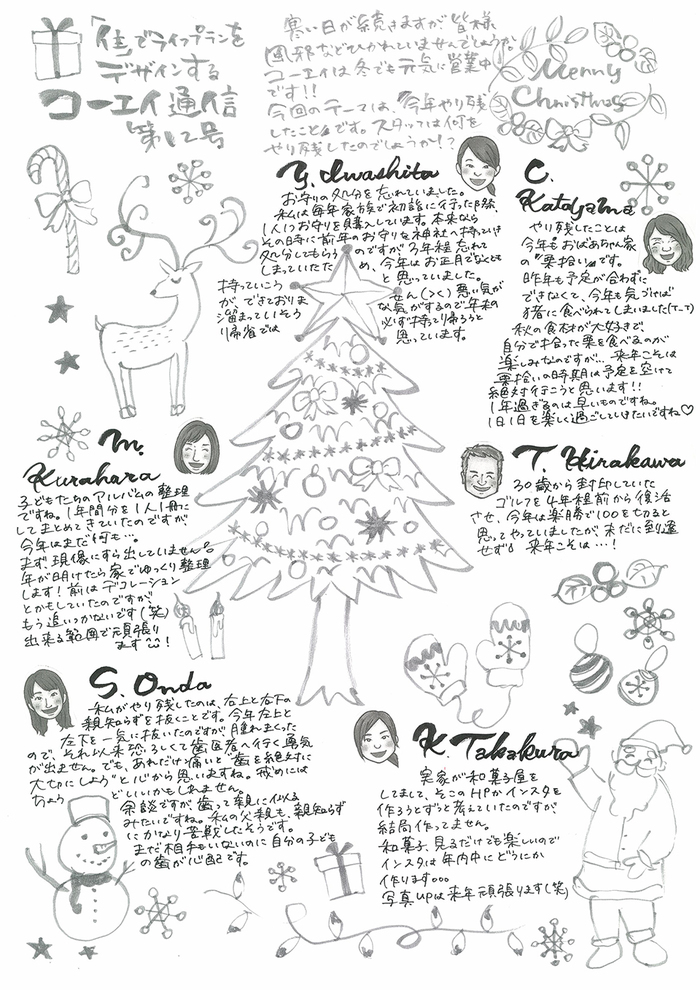 「住」でライフプランを
デザインする
コーエイ通信
第12号
寒い日が続きますが、皆様
風邪などひかれていませんでしょうか。
コーエイは冬でも元気に営業中
です!!
今回のテーマは、「今年やり残
したこと」です。スタッフは何を
やり残したのでしょうか!?
Merry
Christmas
Y. Iwashita
お守りの処分を忘れていました。
私は毎年家族で初詣に行った際、
1人1つお守りを購入しています。本来なら
その時に前年のお守りを神社へ持っていき
処分してもらうのですが3年程忘れて
しまっていたため、今年はお正月でなくとも
持っていこうと思っていました。
が、できておりません(>_<)悪い気が
溜まっていそうな気がするので年末の
帰省では必ず持って帰ろうと
思っています。
C.
Katayama
やり残したことは
今年もおばあちゃん家
の"栗拾い"です。
昨年も予定が合わずに
できなくて、今年も気づけば
猪に食べられてしまいました(T-T)
秋の食材が大好きで、
自分で拾った栗を食べるのが
楽しみなのですが…来年こそは
栗拾いの時期は予定を空けて
絶対行こうと思います!!
1年過ぎるのは早いものですね。
1日1日を楽しく過ごしていきたいですね♡
M.
Kurahara
子どもたちのアルバムの整理
ですね。1年間分を1人1冊に
してまとめてきていたのですが
今年はまだ何も…。
まず現像にすら出していません。
年が明けたら家でゆっくり整理
します!前はデコレーション
とかもしていたのですが、
もう追いつかないです(笑)
出来る範囲で頑張り
ます^^!
T. Hirakawa
30歳から封印していた
ゴルフを4年程前から復活
させ、今年は楽勝で100を切ると
思ってやっていましたが、未だに到達
せず!来年こそは…!
S. Onda
私がやり残したのは、右上と右下の
親知らずを抜くことです。今年左上と
左下を一気に抜いたのですが、腫れまくった
ので、それ以来恐ろしくて歯医者へ行く勇気
が出ません。でも、あれだけ痛いと"歯を絶対に
大切にしよう"と心から思いますね。戒めには
ちょうどいいかもしれません。
余談ですが、歯って親に似る
みたいですね。私の父親も、親知らず
にかなり苦戦したそうです。
まだ相手もいないのに自分の子ども
の歯が心配です。
K. Takakura
実家が和菓子屋を
してまして、そこのHPかインスタを
作ろうとずっと考えていたのですが、
結局作ってません。
和菓子、見るだけでも楽しいので
インスタは年内中にどうにか
作ります。。。
写真UPは来年頑張ります(笑)